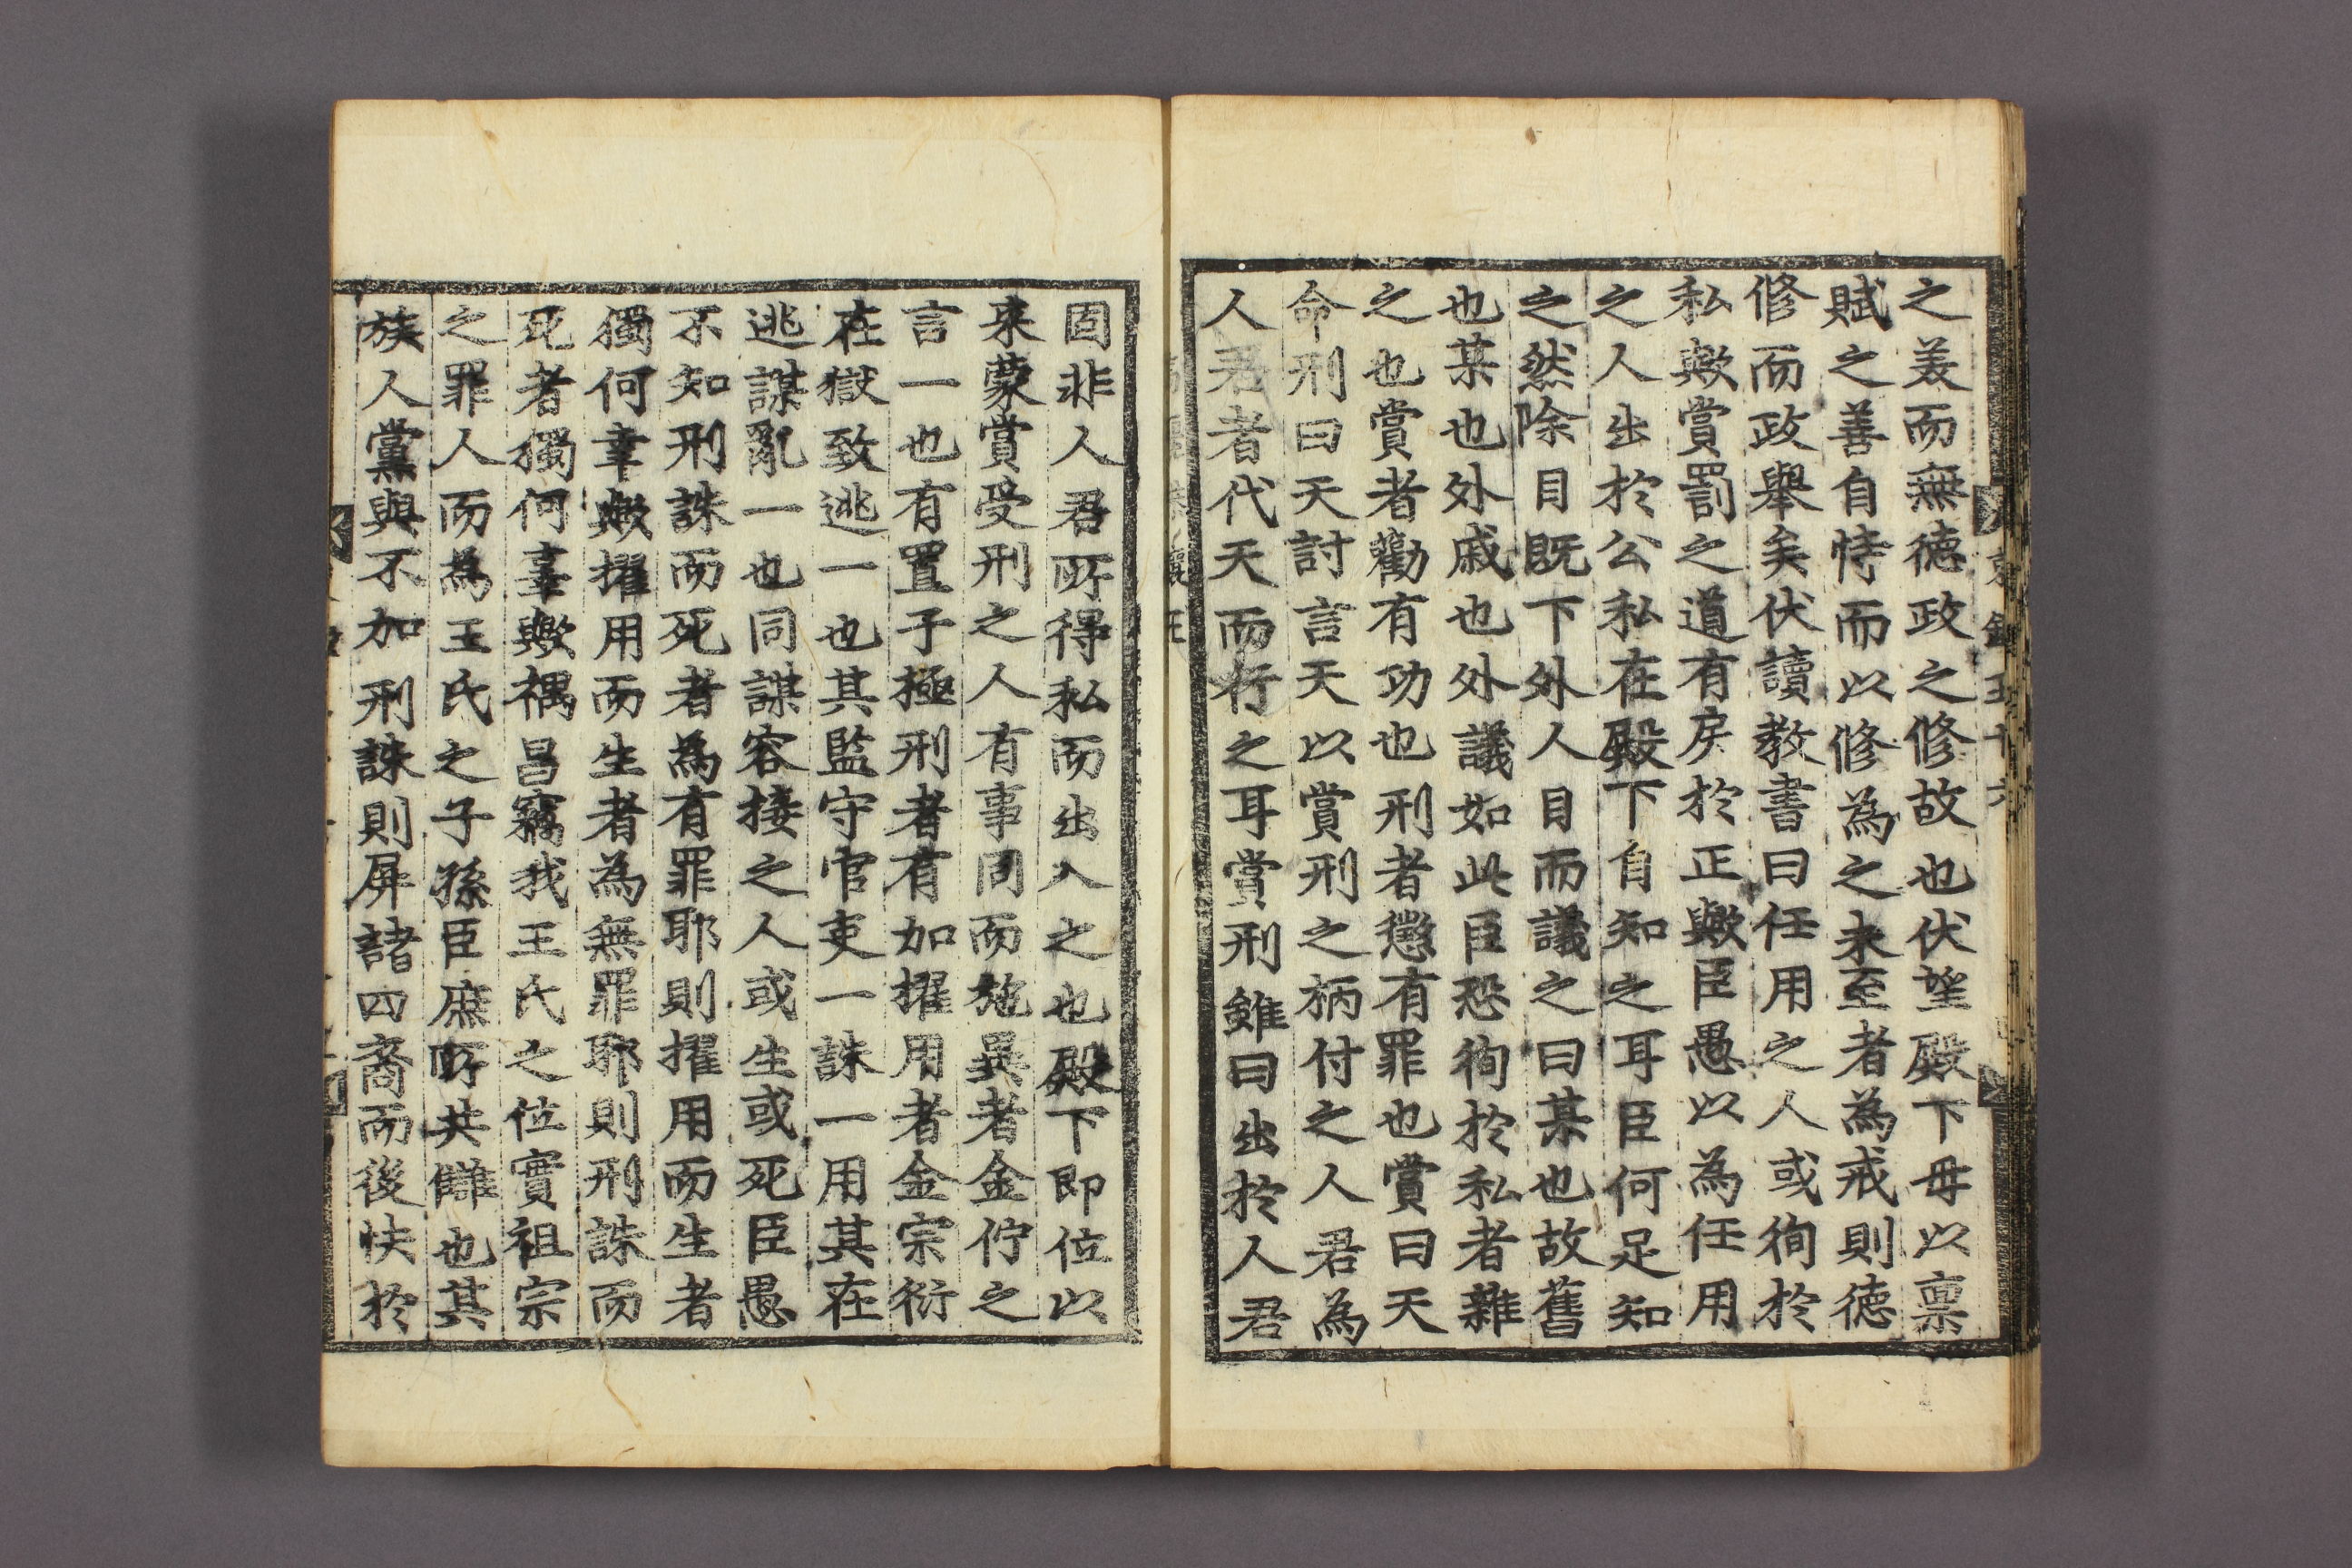 之美而無德政之修故也伏望殿下毋以稟
賦之善自恃而以修為之未至者為戒則德
修而政舉矣伏讀敎書曰任用之人或徇於
私歟賞罰之道有戾於正歟臣愚以為任用
之人出於公私在殿下自知之耳臣何足知
之然除目既下外人目而議之曰某也故舊
也某也外戚也外議如此臣恐徇於私者雜
之也賞者勸有功也刑者懲有罪也賞曰天
命刑曰天討言天以賞刑之柄付之人君為
人君者代天而行之耳賞刑雖曰出於人君
固非人君所得私而出入之也殿下即位以
来蒙賞受刑之人有事同而施異者金佇之
言一也有置于極刑者有加擢用者金宗衍
在獄致逃一也其監守官吏一誅一用其在
逃謀亂一也同謀容接之人或生或死臣愚
不知刑誅而死者為有罪耶則擢用而生者
獨何幸歟擢用而生者為無罪耶則刑誅而
死者獨何辜歟禑昌竊我王氏之位實祖宗
之罪人而為王氏之子孫臣庶所共讎也其
族人黨與不加刑誅則屏諸四裔而後快於